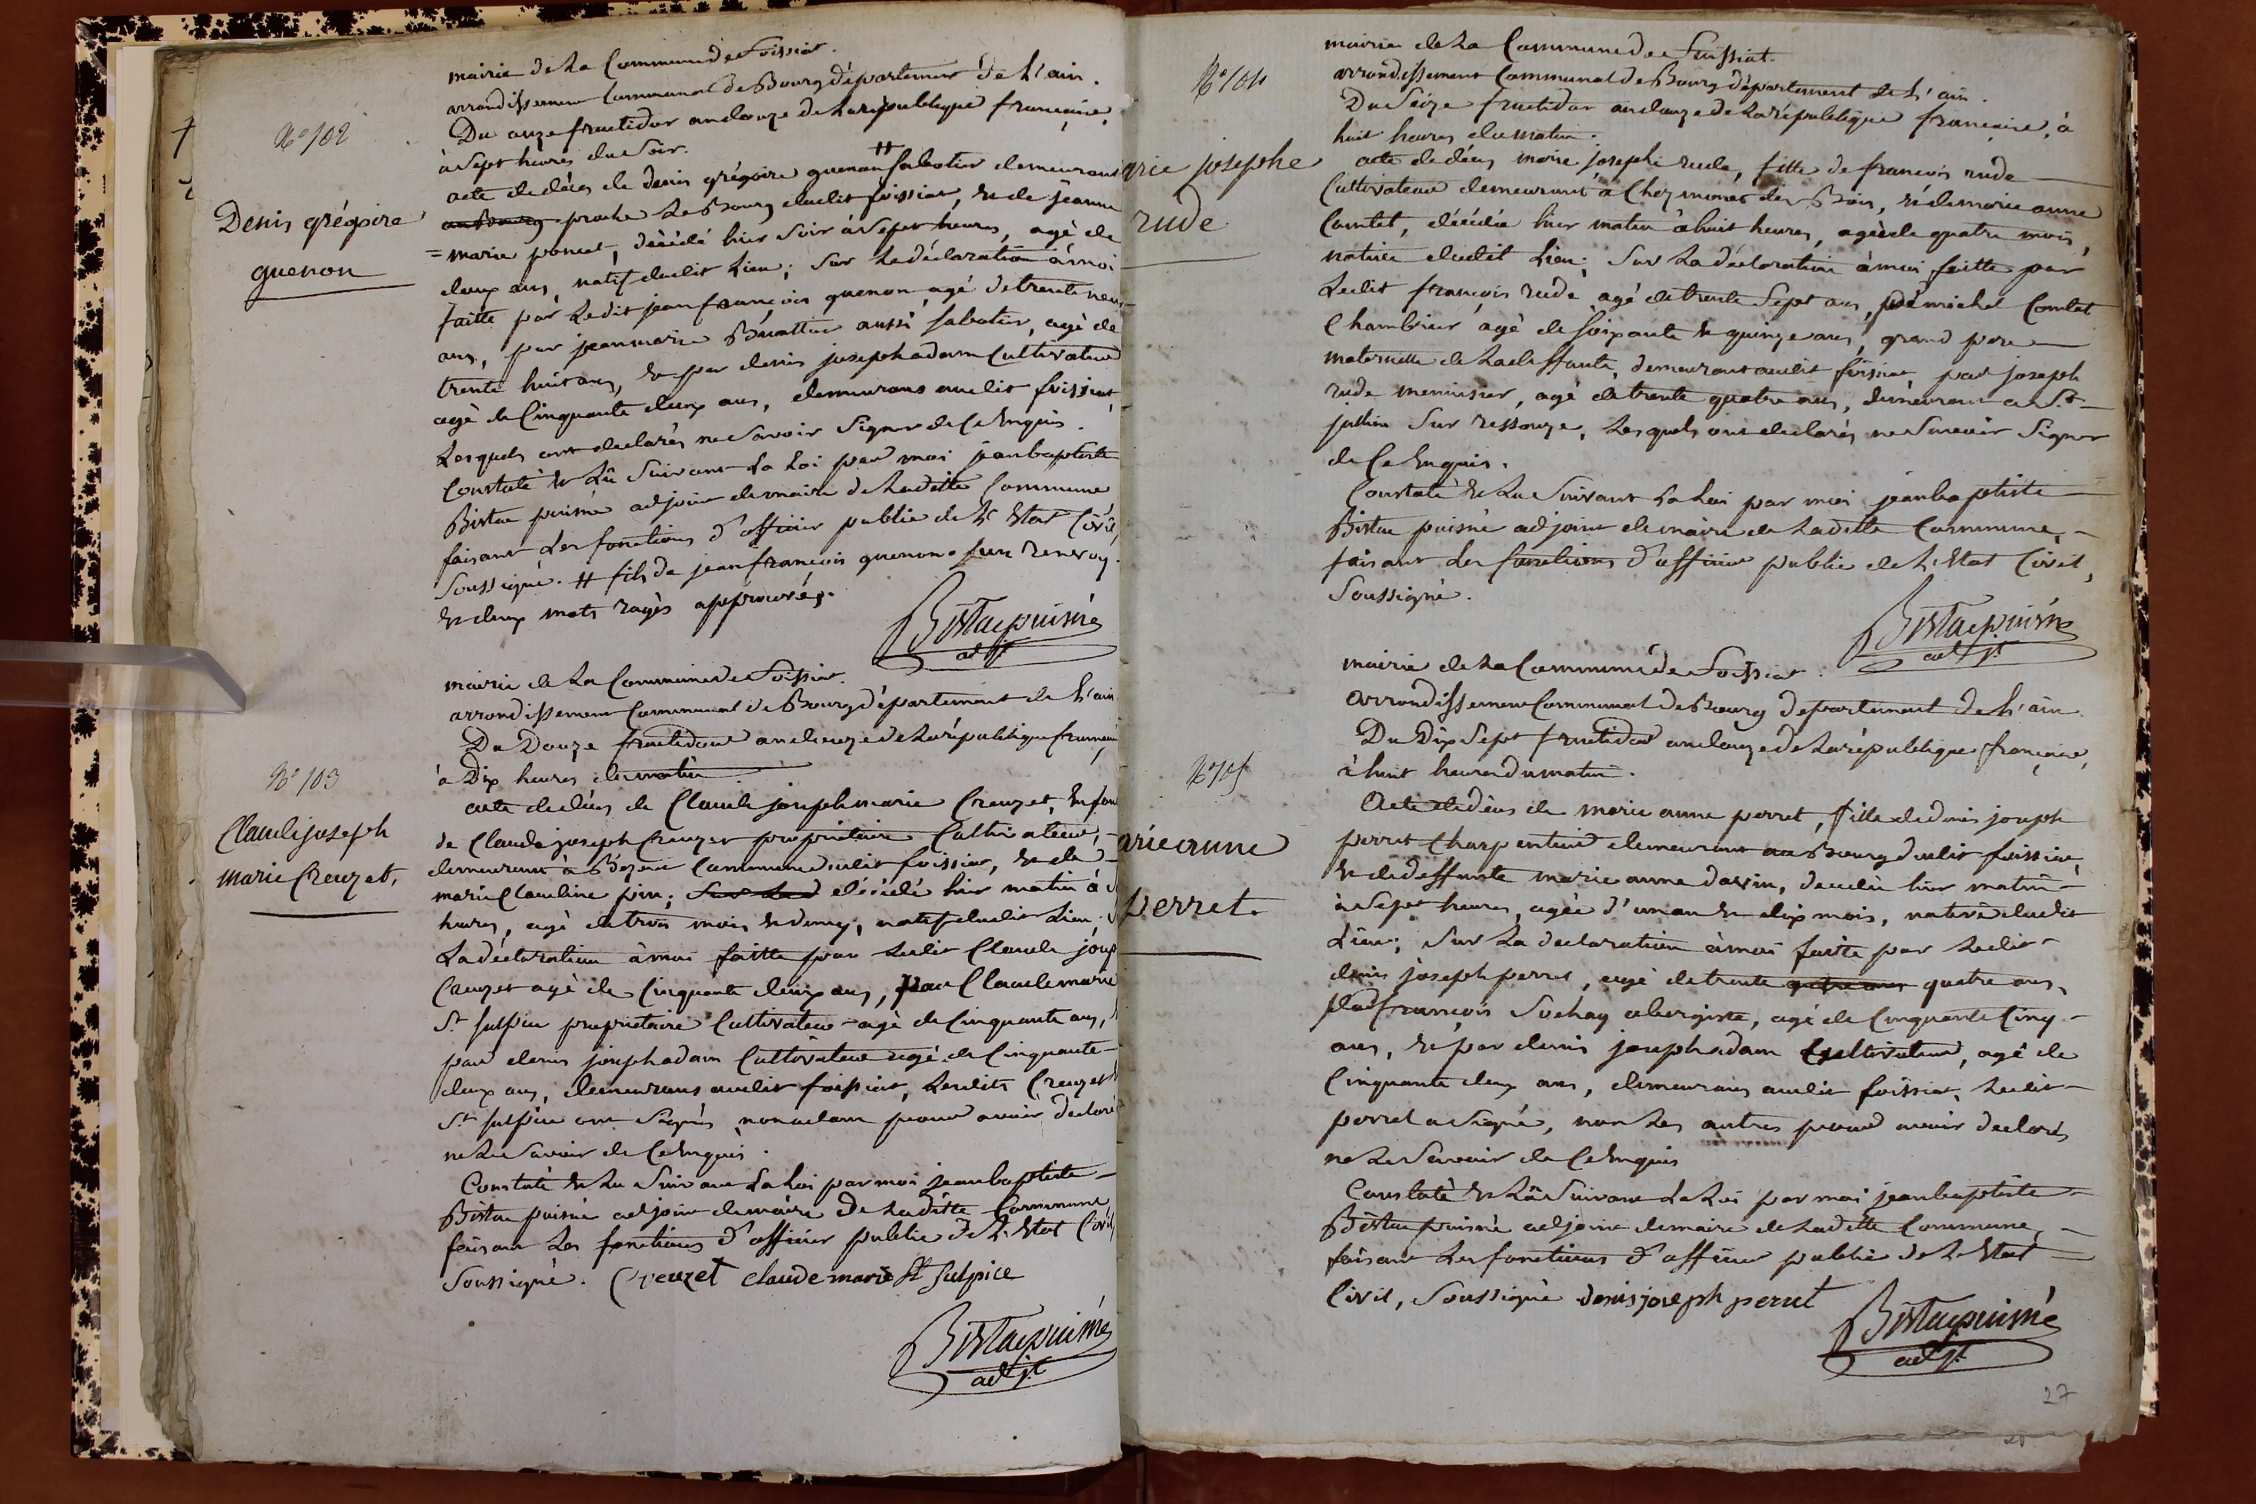 mairie de La Commune de Foissiat.
arrondissement Communal de Bourg département de L'ain.
N.º 102
Du onze fructidor an douze de La république française,
à Sept heures du Soir.
acte de décès de denis grégoire guenon ⌗ Sabotier demeurant
au Bourg proche Le Bourg dudit foissiat, et de jeanne
Denis grégoire
guenon
= marie poncet, décédé hier Soir à Sept heures, agé de
deux ans, natif dudit Lieu; Sur La déclaration à moi
faitte par Ledit jean françois guenon agé de trente neuf
ans, par jean marie Buattier aussi Sabotier, agé de
trente huit ans, et par denis joseph adam Cultivateur
agé de Cinquante deux ans, demeurans audit foissiat,
Lesquels ont declarés ne Savoir Signer de Ce Enquis.
Constaté et Lû Suivant La Loi par moi jean baptiste
puisné adjoint de maire de Laditte Commune
faisant Les fonctions d'officier public de L'Etat Civil,
Soussigné. ⌗ fils de jean françois guenon. Sur Renvoy
et deux mots rayés approuvés.
puisné
adjt
mairie de La Commune de Foissiat.
arrondissement Communal de Bourg département de L'ain
Du Douze fructidor an douze de La république française
N.º 103
à Dix heures du matin.
Claude joseph
marie Creuzet,
acte de décès de Claude joseph marie Creuzet, Enfant
de Claude joseph Creuzet propriétaire Cultivateur,
demeurant à Commune dudit foissiat, et de
marie Claudine pin; Sur La d décédé hier matin à
heures, agé de trois mois et demy, natif dudit Lieu; S
La déclaration à moi faitte par Ledit Claude josep
Creuzet agé de Cinquante deux ans, par Claude marie
St Sulpice propriétaire Cultivateur agé de Cinquante ans,
par denis joseph adam Cultivateur agé de Cinquante
deux ans, demeurans audit foissiat, Lesdits Creuzet
St Sulpice ont Signés non adam pour avoir declaré
ne Le Savoir de Ce Enquis.
Constaté et Lu Suivant La Loi par moi jean baptiste
puisné adjoint de maire de Laditte Commune
faisant Les fonctions d'officier public de L'Etat Civil,
Soussigné. Creuzet claude marie St Sulpice
puisné
adjt
mairie de La Commune de Foissiat.
N.º 104
arrondissement Communal de Bourg département de L'ain.
Du Seize fructidor an douze de La république française, à
huit heures du matin.
arie josephe
rude
acte de décès marie josephe rude, fille de francois rude
Cultivateur demeurant à Chez des Bois, et de marie anne
Comtet, décédée hier matin à huit heures, agée de quatre mois,
native dudit Lieu; Sur La déclaration à moi faitte par
Ledit françois rude agé de trente Sept ans, par michel Comtet
Chambrier agé de Soixante et quinze ans, grand pere
maternelle de La deffunte, demeurant audit foissiat, par joseph
rude menuisier, agé de trente quatre ans, demeurant a St
jullien Sur ressouze, Lesquels ont declarés ne Savoir Signer
de Ce Enquis.
Constaté et Lu Suivant La Loi par moi jean baptiste
puisné adjoint de maire de Laditte Commune,
faisant Les fonctions d'officier public de L'Etat Civil,
Soussigné.
puisné
adjt
mairie de La Commune de Foissiat.
arrondissement Communal de Bourg département de L'ain.
Du Dix Sept fructidor an douze de La république française,
N.º 105
à huit heures du matin.
arie anne
perret.
Acte de décès de marie anne perret, fille de denis joseph
perret Charpentier demeurant au Bourg dudit foissiat,
et de deffunte marie anne davin, décédée hier matin
à Sept heures, agée d'un an et dix mois, native dudit
Lieu; Sur La declaration à moi faitte par Ledit
denis joseph perret, agé de trente quatre ans,
par françois Sochay aubergiste, agé de Cinquante Cinq
ans, et par denis joseph adam Cultivateur, agé de
Cinquante deux ans, demeurans audit foissiat, Ledit
perret a Signé, non Les autres pour avoir declarés
ne Le Savoir de Ce Enquis
Constaté et Lû Suivant La Loi par moi jean baptiste
puisné adjoint de maire de Laditte Commune,
faisant Les fonctions d'officier public de L'Etat
Civil, Soussigné denis joseph perret
puisné
adjt
27